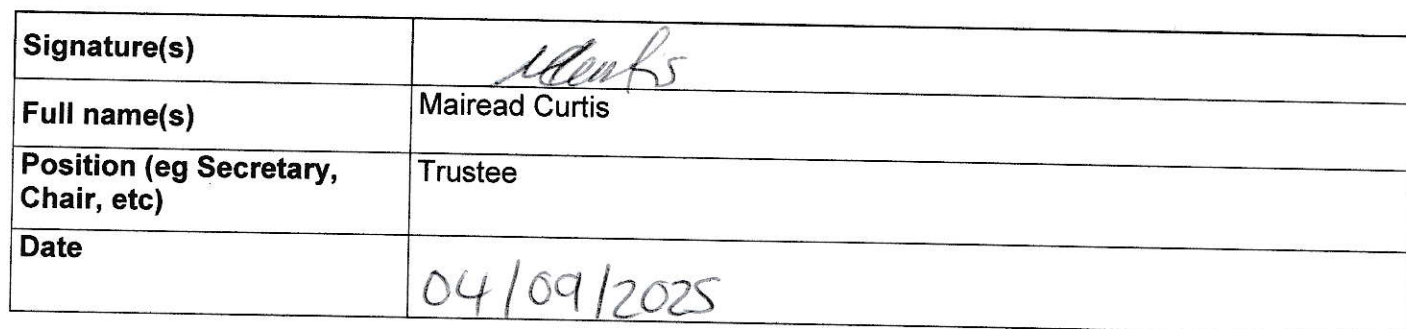 Signature(s)
Full name(s) Mairead Curtis
Position (eg Secretary, Trustee
Chair, etc)
Date 04/09/2025